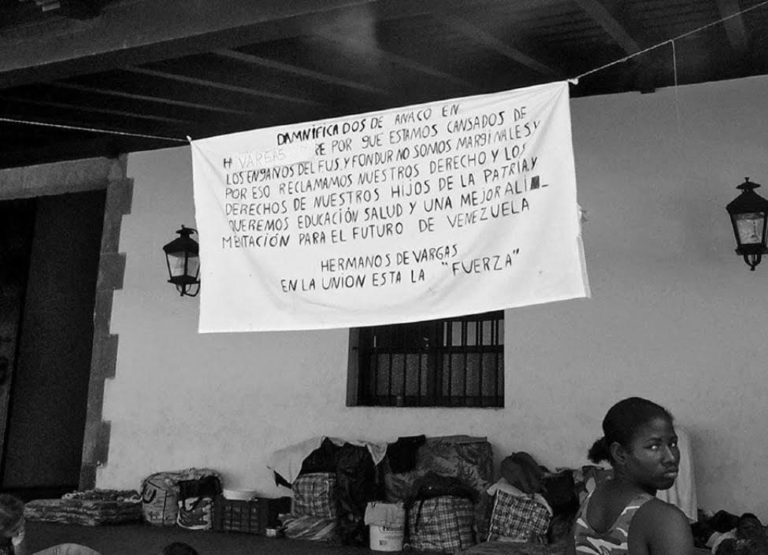 DAMNIFICADOS DE ANACO EN
H VARGAS RE POR QUE ESTAMOS CANSADOS DE
LOS ENGAÑOS DEL FUS Y FONDUR NO SOMOS MARGINALES Y
POR ESO RECLAMAMOS NUESTROS DERECHO Y LOS
DERECHOS DE NUESTROS HIJOS DE LA PATRIA, Y
QUEREMOS EDUCACIÓN SALUD Y UNA MEJOR ALI_
MENTACIÓN PARA EL FUTURO DE VENEZUELA
HERMANOS DE VARGAS
EN LA UNION ESTA LA "FUERZA"